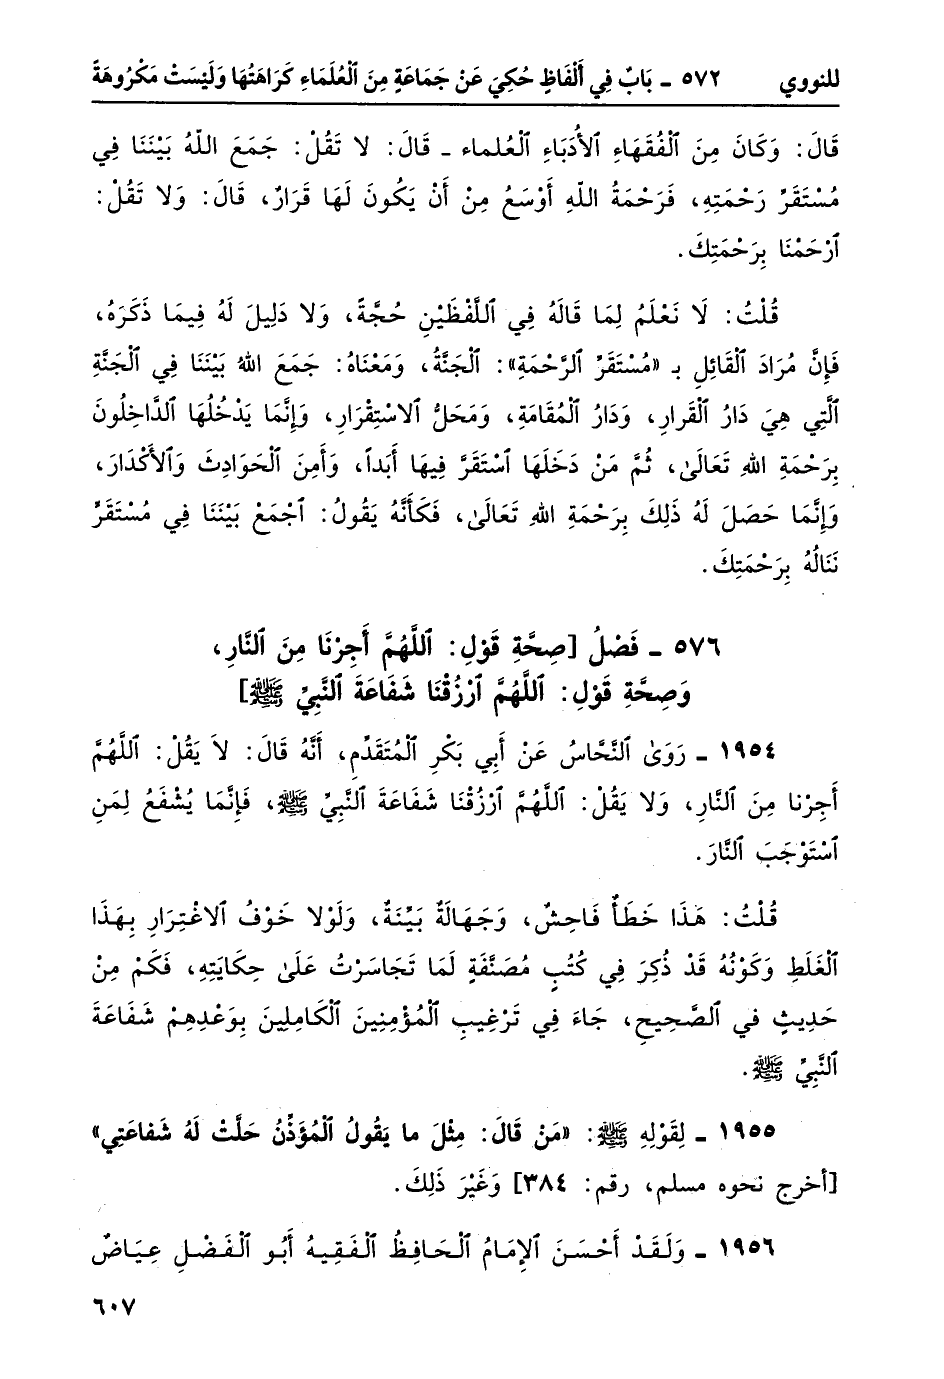 للنووي ٥٧٢ ـ بَابٌ فِي أَلْفَاظٍ حُكِيَ عَنْ جَمَاعَةٍ مِنَ ٱلْعُلَمَاءِ كَرَاهَتُهَا وَلَيْسَتْ مَكْرُوهَةً
قَالَ: وَكَانَ مِنَ ٱلْفُقَهَاءِ ٱلأُدَبَاءِ ٱلْعُلماء ـ قَالَ: لا تَقُلْ: جَمَعَ اللَّهُ بَيْنَنَا فِي
مُسْتَقَرِّ رَحْمَتِهِ، فَرَحْمَةُ اللَّهِ أَوْسَعُ مِنْ أَنْ يَكُونَ لَهَا قَرَارٌ، قَالَ: وَلا تَقُلْ:
ٱرْحَمْنَا بِرَحْمَتِكَ.
قُلْتُ: لَا نَعْلَمُ لِمَا قَالَهُ فِي ٱللَّفْظَيْنِ حُجَّةً، وَلا دَلِيلَ لَهُ فِيمَا ذَكَرَهُ،
فَإِنَّ مُرَادَ ٱلْقَائِلِ بـ «مُسْتَقَرِّ ٱلرَّحْمَةِ»: ٱلْجَنَّةُ، وَمَعْنَاهُ: جَمَعَ اللهُ بَيْنَنَا فِي ٱلْجَنَّةِ
ٱلَّتِي هِيَ دَارُ ٱلْقَرارِ، وَدَارُ ٱلْمُقَامَةِ، وَمَحَلُّ ٱلاسْتِقْرَارِ، وَإِنَّمَا يَدْخُلُهَا ٱلدَّاخِلُونَ
بِرَحْمَةِ اللهِ تَعَالَىٰ، ثُمَّ مَنْ دَخَلَهَا ٱسْتَقَرَّ فِيهَا أَبَداً، وَأَمِنَ ٱلْحَوَادِثَ وَٱلأَكْدَارَ،
وَإِنَّمَا حَصَلَ لَهُ ذَلِكَ بِرَحْمَةِ اللهِ تَعَالَىٰ، فَكَأَنَّهُ يَقُولُ: ٱجْمَعْ بَيْنَنَا فِي مُسْتَقَرٍّ
نَنَالُهُ بِرَحْمَتِكَ.
٥٧٦ ـ فَصْلُ [صِحَّةِ قَوْلِ: ٱللَّهُمَّ أَجِرْنَا مِنَ ٱلنَّارِ،
وَصِحَّةِ قَوْلِ: ٱللَّهُمَّ ٱرْزُقْنَا شَفَاعَةَ ٱلنَّبِيِّ ﷺ]
١٩٥٤ ـ رَوَىٰ ٱلنَّحَّاسُ عَنْ أَبِي بَكْرٍ ٱلْمُتَقَدِّمِ، أَنَّهُ قَالَ: لاَ يَقُلْ: ٱللَّهُمَّ
أَجِرْنا مِنَ ٱلنَّارِ، وَلا يَقُلْ: ٱللَّهُمَّ ٱرْزُقْنَا شَفَاعَةَ ٱلنَّبِيِّ ﷺ، فَإِنَّمَا يُشْفَعُ لِمَنِ
ٱسْتَوْجَبَ ٱلنَّارَ.
قُلْتُ: هَذَا خَطَأٌ فَاحِشٌ، وَجَهَالَةٌ بَيِّنَةٌ، وَلَوْلا خَوْفُ ٱلاغْتِرَارِ بِهَذَا
ٱلْغَلَطِ وَكَوْنُهُ قَدْ ذُكِرَ فِي كُتُبٍ مُصَنَّفَةٍ لَمَا تَجَاسَرْتُ عَلَىٰ حِكَايَتِهِ، فَكَمْ مِنْ
حَدِيثٍ في ٱلصَّحِيحِ، جَاءَ فِي تَرْغِيبِ ٱلْمُؤْمِنِينَ ٱلْكَامِلِينَ بِوَعْدِهِمْ شَفَاعَةَ
ٱلنَّبِيِّ ﷺ.
١٩٥٥ ـ لِقَوْلِهِ ﷺ: «مَنْ قَالَ: مِثْلَ ما يَقُولُ ٱلْمُؤَذِّنُ حَلَّتْ لَهُ شَفاعَتِي»
[أخرج نحوه مسلم، رقم: ٣٨٤] وَغَيْرَ ذَلِكَ.
١٩٥٦ ـ وَلَقَدْ أَحْسَنَ ٱلإِمَامُ ٱلْحَافِظُ ٱلْفَقِيهُ أَبُو ٱلْفَضْلِ عِيَاضٌ
٦٠٧